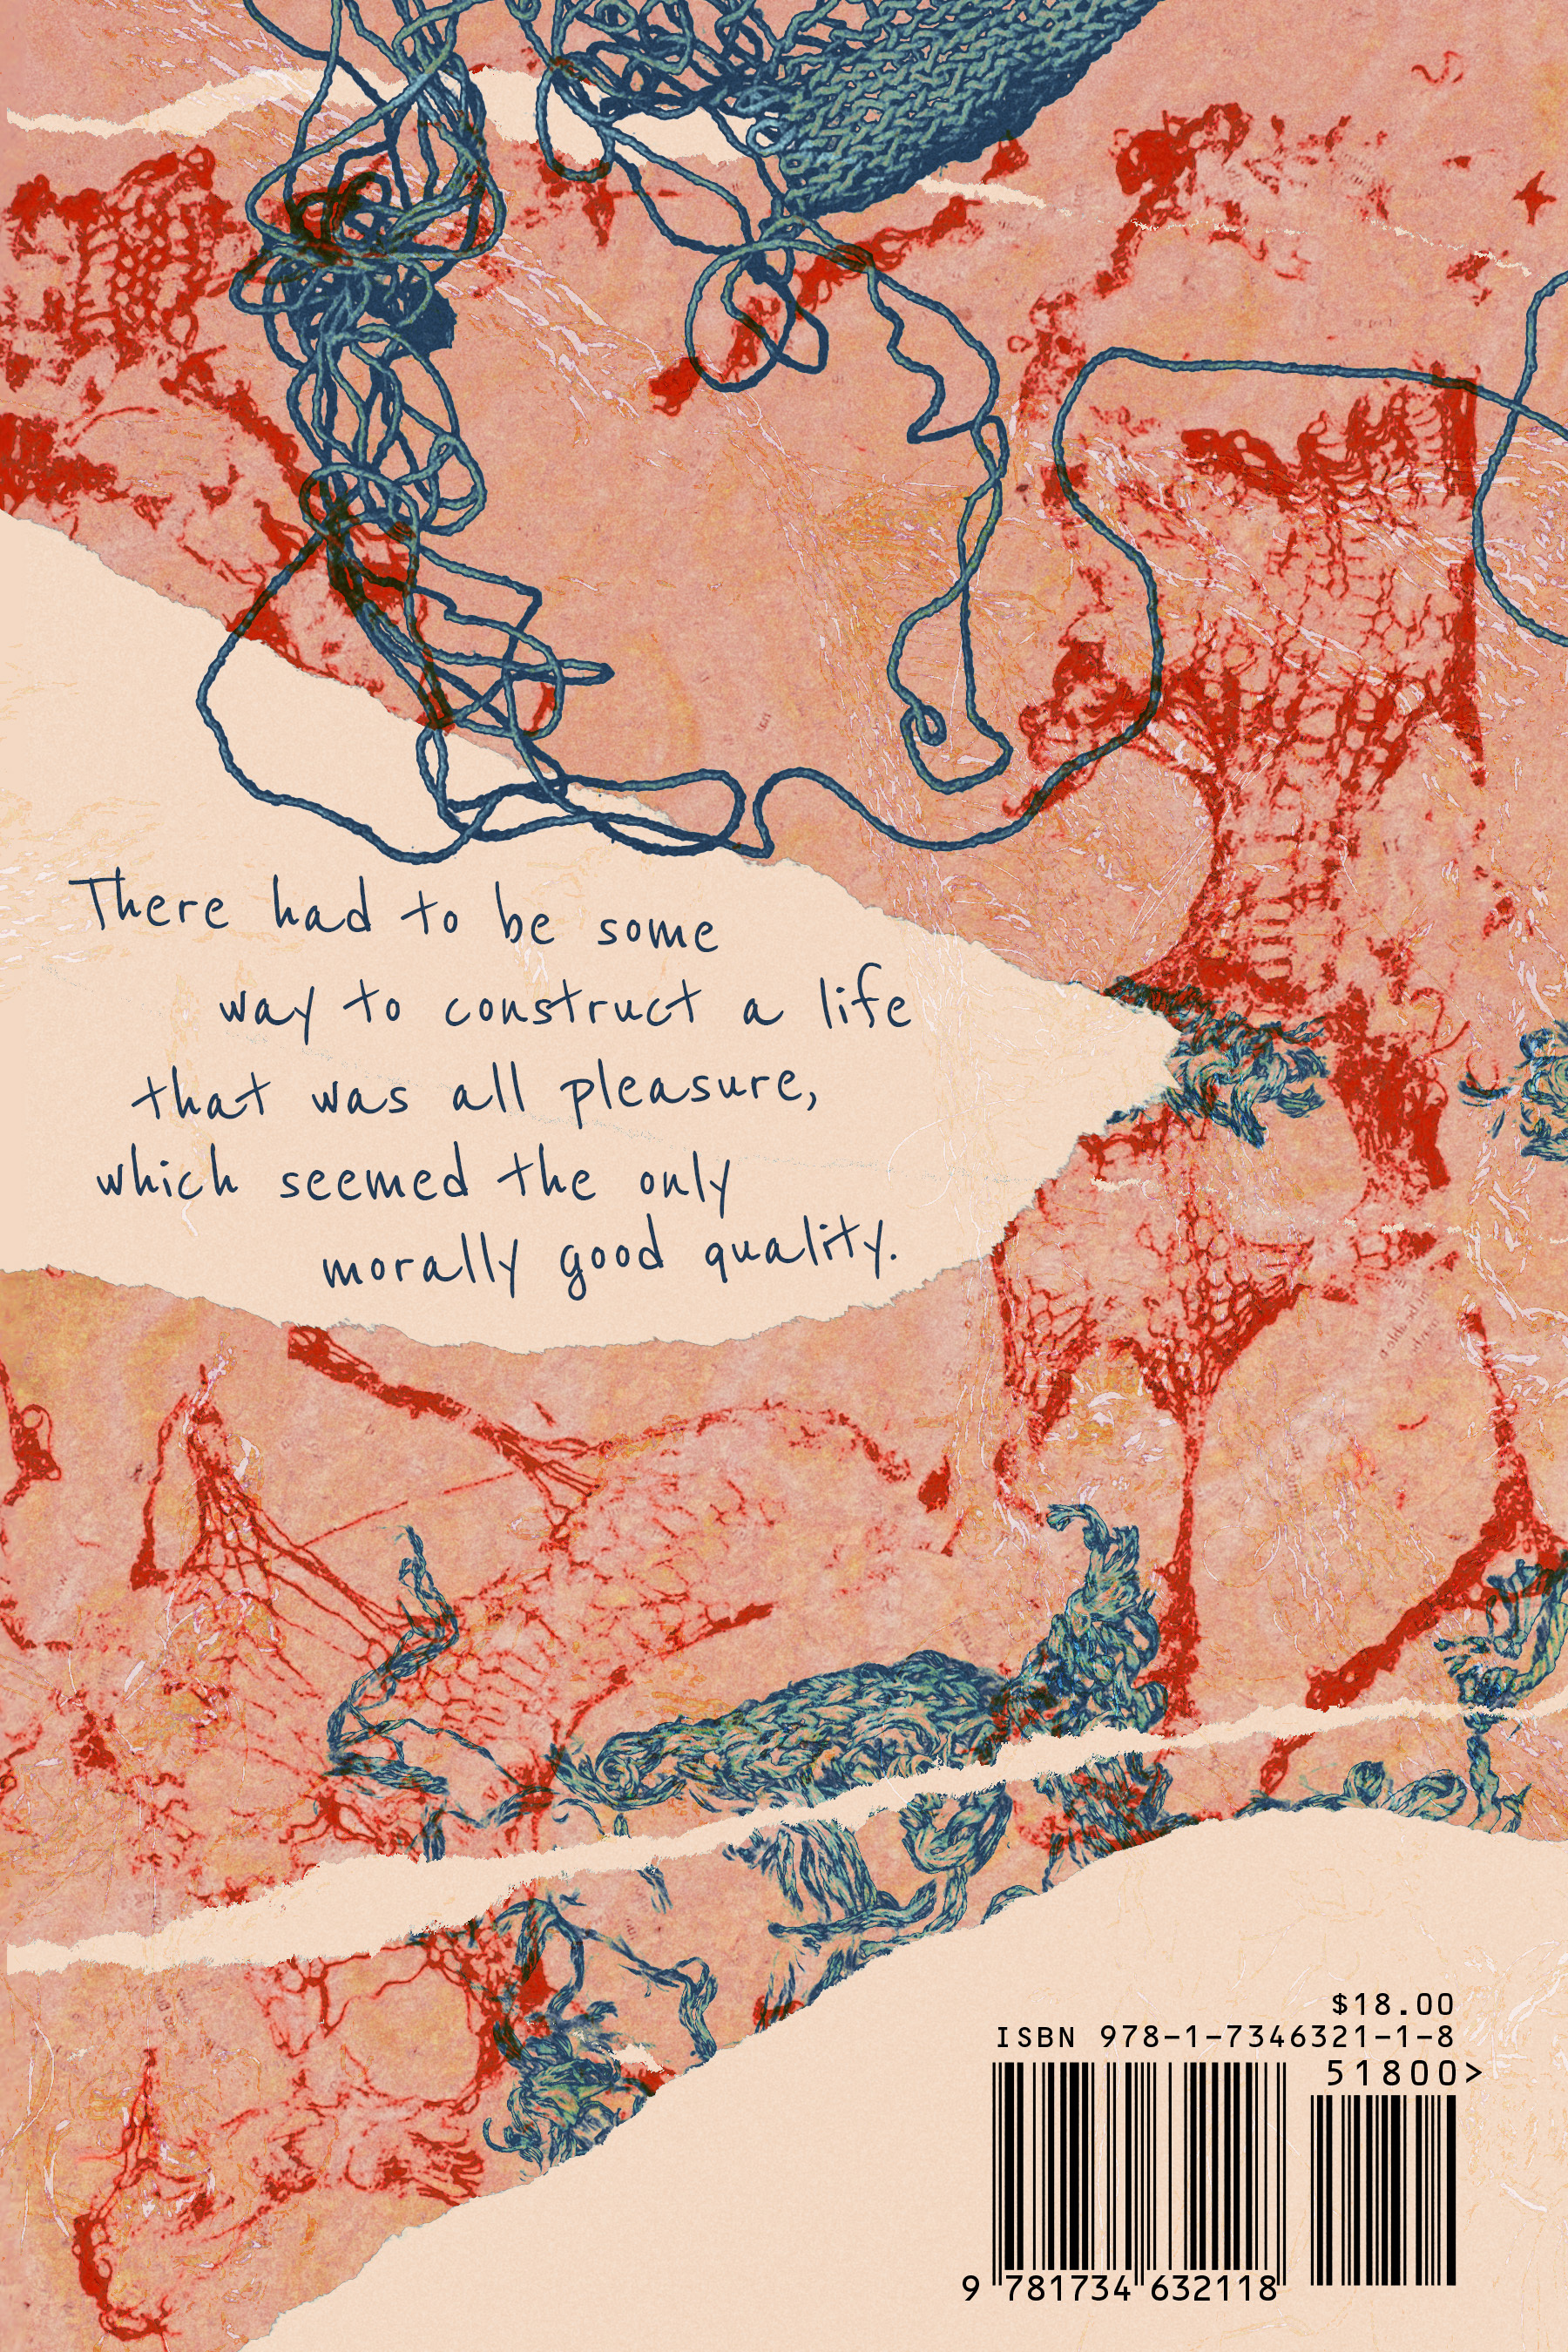 There had to be some
way to construct a life
that was all pleasure,
which seemed the only
morally good quality.
$18.00
ISBN 978-1-7346321-1-8
51800>
9 781734 632118